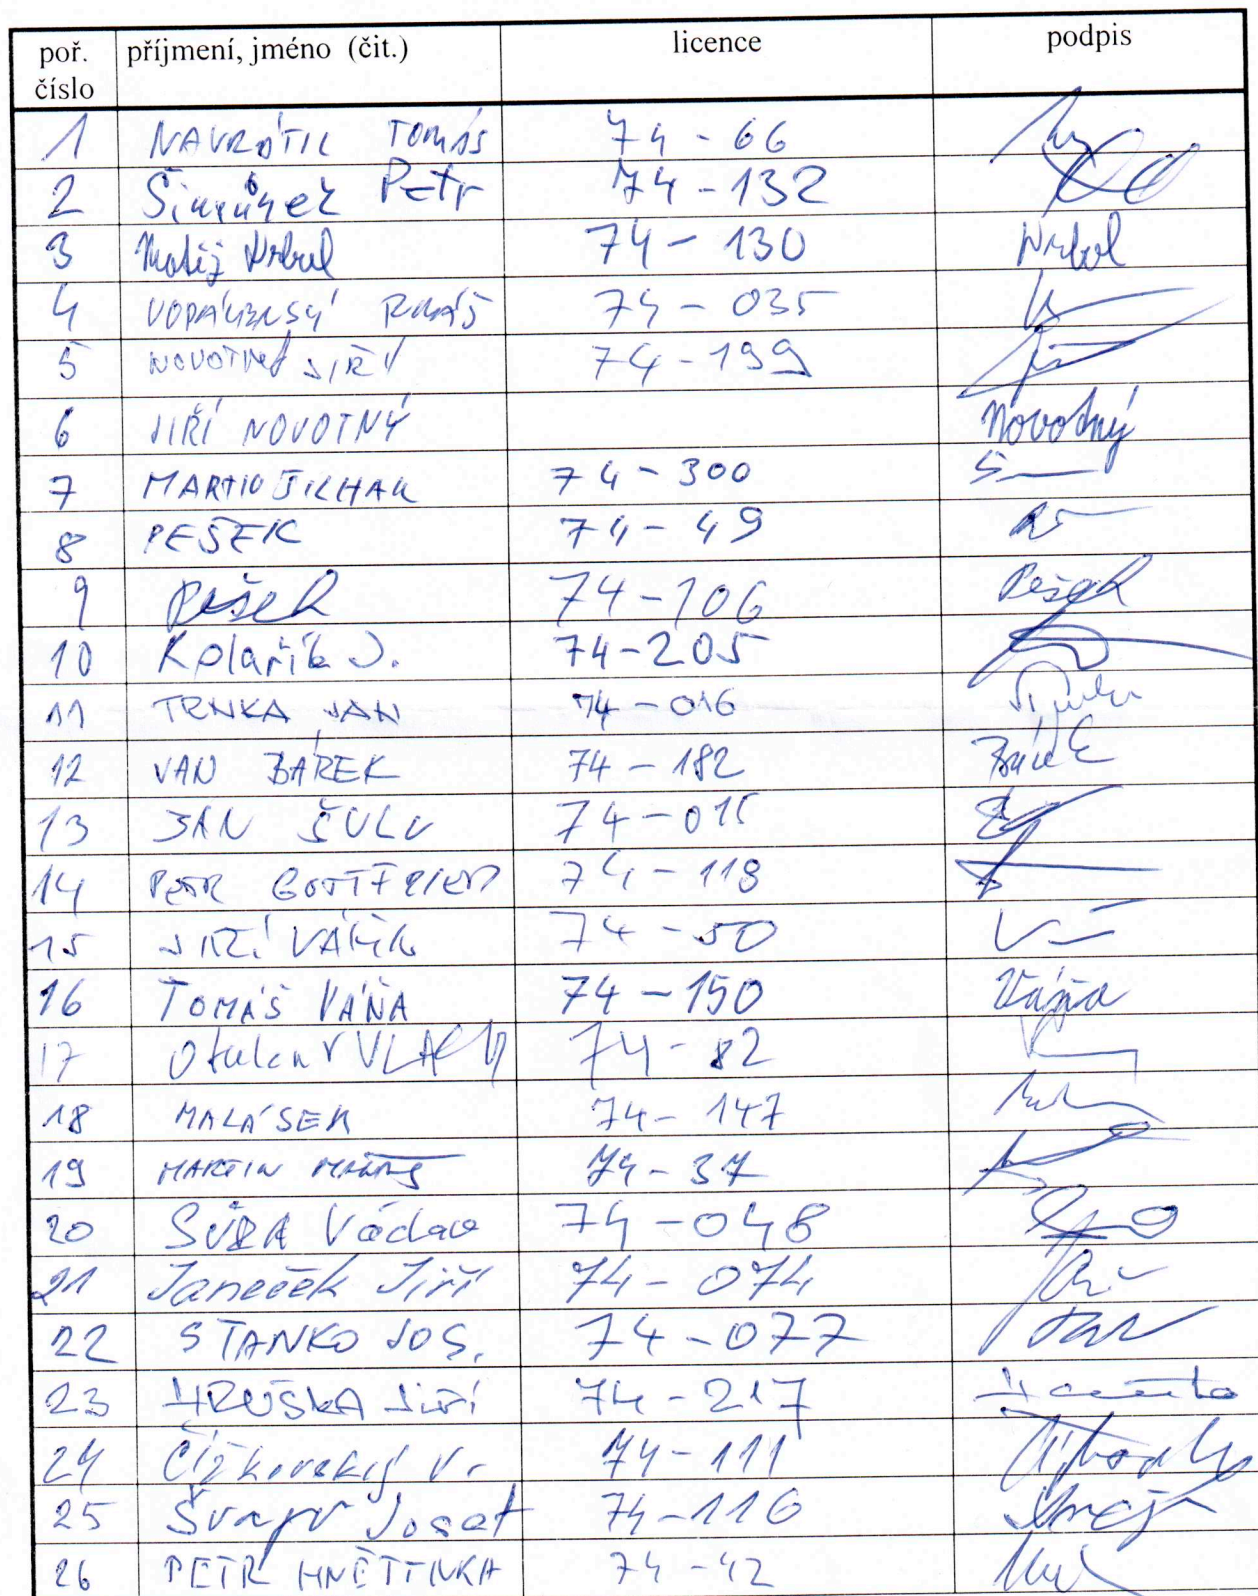 poř. číslo příjmení, jméno (čit.) licence podpis
1 NAVRÁTIL TOMÁŠ 74-66
2 Šimůnek Petr 74-132
3 Matěj Vrbal 74-130 Vrbal
4 74-035
5 NOVOTNÝ JIŘÍ 74-199
6 JIŘÍ NOVOTNÝ Novotný
7 MARTIN 74-300
8 PEŠEK 74-49
9 Pešek 74-106 Pešek
10 Kolařík J. 74-205
11 TRNKA JAN 74-016
12 VAN BÁREK 74-182
13 JAN ŠULC 74-015
14 PETR GOTTFRIED 74-119
15 JIŘÍ 74-50
16 TOMÁŠ VÁŇA 74-150 Váňa
17 Otakar VLACH 74-82
18 MALÁSEK 74-147
19 MARTIN 74-37
20 SŮRA Václav 74-048
21 Janeček Jiří 74-074
22 STANKO JOS. 74-077
23 HRUŠKA Jiří 74-217
24 Čížkovský V. 74-111
25 Josef 74-116
26 PETR 74-42